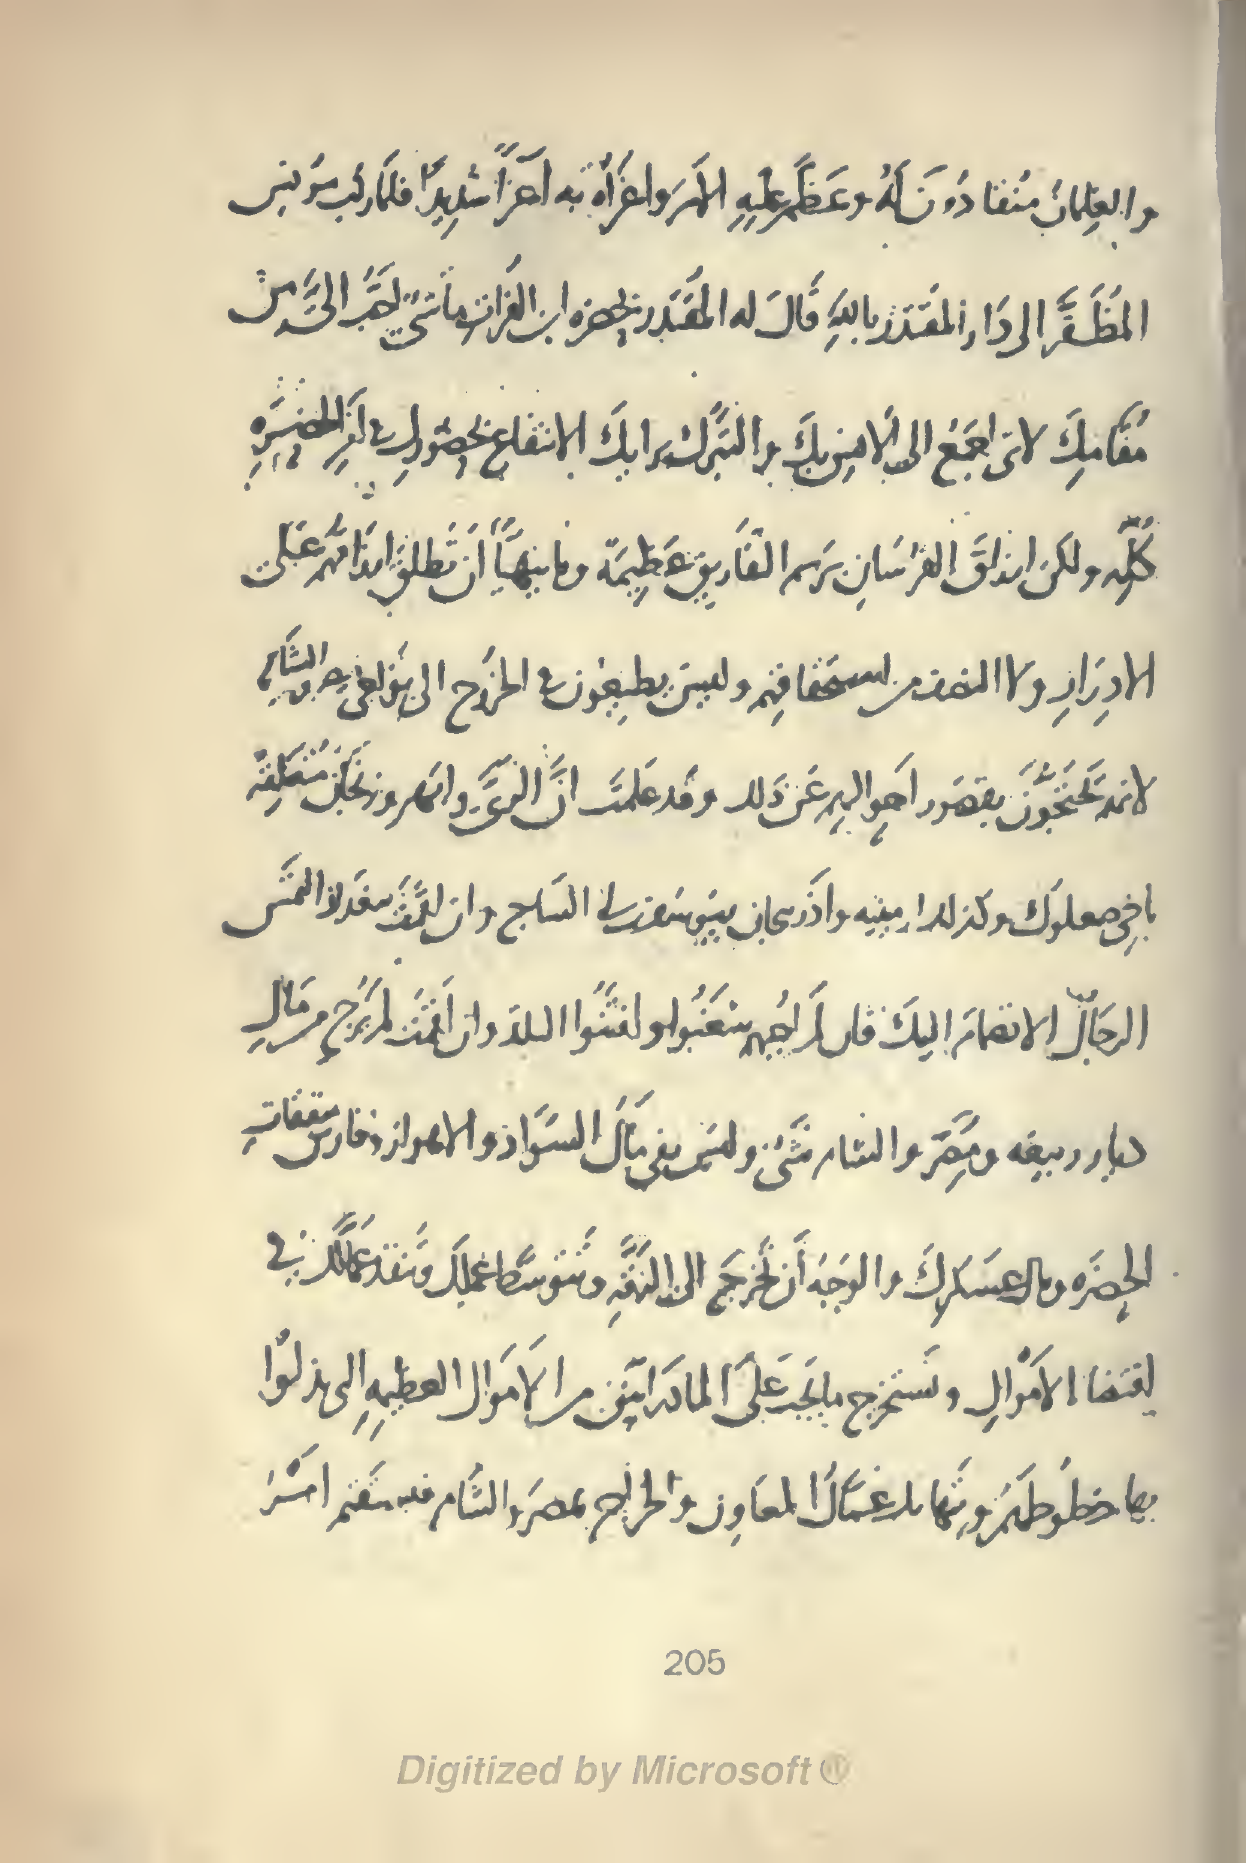 والغلمان منقادون له وعظم عليه الامر واغراه به اغراً شديداً فلما ركب مونس
المظفر الى دار المقتدر بالله قال له المقتدر بحضرة ابن الفرات ما شيٌ احب الىَّ من
مقامك لانى اجمع الى الانس بك والتبرك برايك الانتفاع بحضورك فى امر الحضره
كله ولكن ارزاق الفرسان برسم التفاريق عظيمة وما يتهيأ ان تطلق ابدا لهم على
الادرار ولا النصف من استحقاقهم وليس يطيعون فى الخروج الى نواحى مصر والشام
لانهم يحتجون بقصور احوالهم عن ذلك وقد علمت انَّ الرىَّ وابهر وزنجان منغلقة
باخى صعلوك وكذلك ارمينيه واذربيجان بيوسف بن ابى الساج وان اقمت ببغداد التمس
الرجال الانضمام اليك فان لم اجبهم شغبوا وافتنوا البلد وان اقمت لم يرج من مال
ديار ربيعه ومضر والشام شىٌ وليس يفى مال السواد والاهواز وفارس بنفقات
الحضره ومال عسكرك والوجه أن تخرج الى الرقة وتتوسط عملك وتنفذ عمالك فى
اقتضا الاموال وتستخرج ما يجب على الماذرائيين من الاموال العظيمه التى بذلوا
بها خطوطهم وتهابك عمال المعاون والخراج بمصر والشام فيستقيم امر
205
Digitized by Microsoft ®